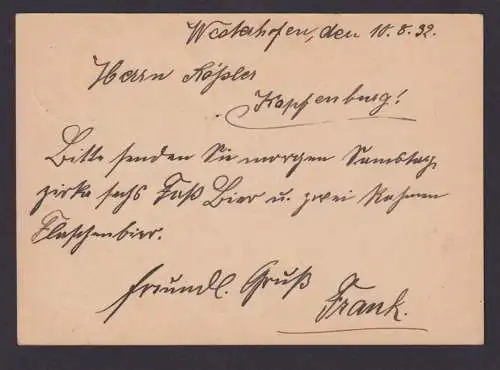 Westerhofen, den 10.8.32.
Herrn Rößler
Kapfenburg!
Bitte senden Sie morgen Samstag
zirka sechs Faß Bier u. zwei Rahmen
Flaschenbier.
freundl. Gruß
Frank.